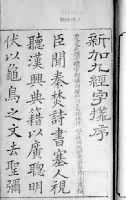 新加九經字樣序
臣聞秦焚詩書塞人視
聽漢興典籍以廣聰明
伏以龜鳥之文去聖彌